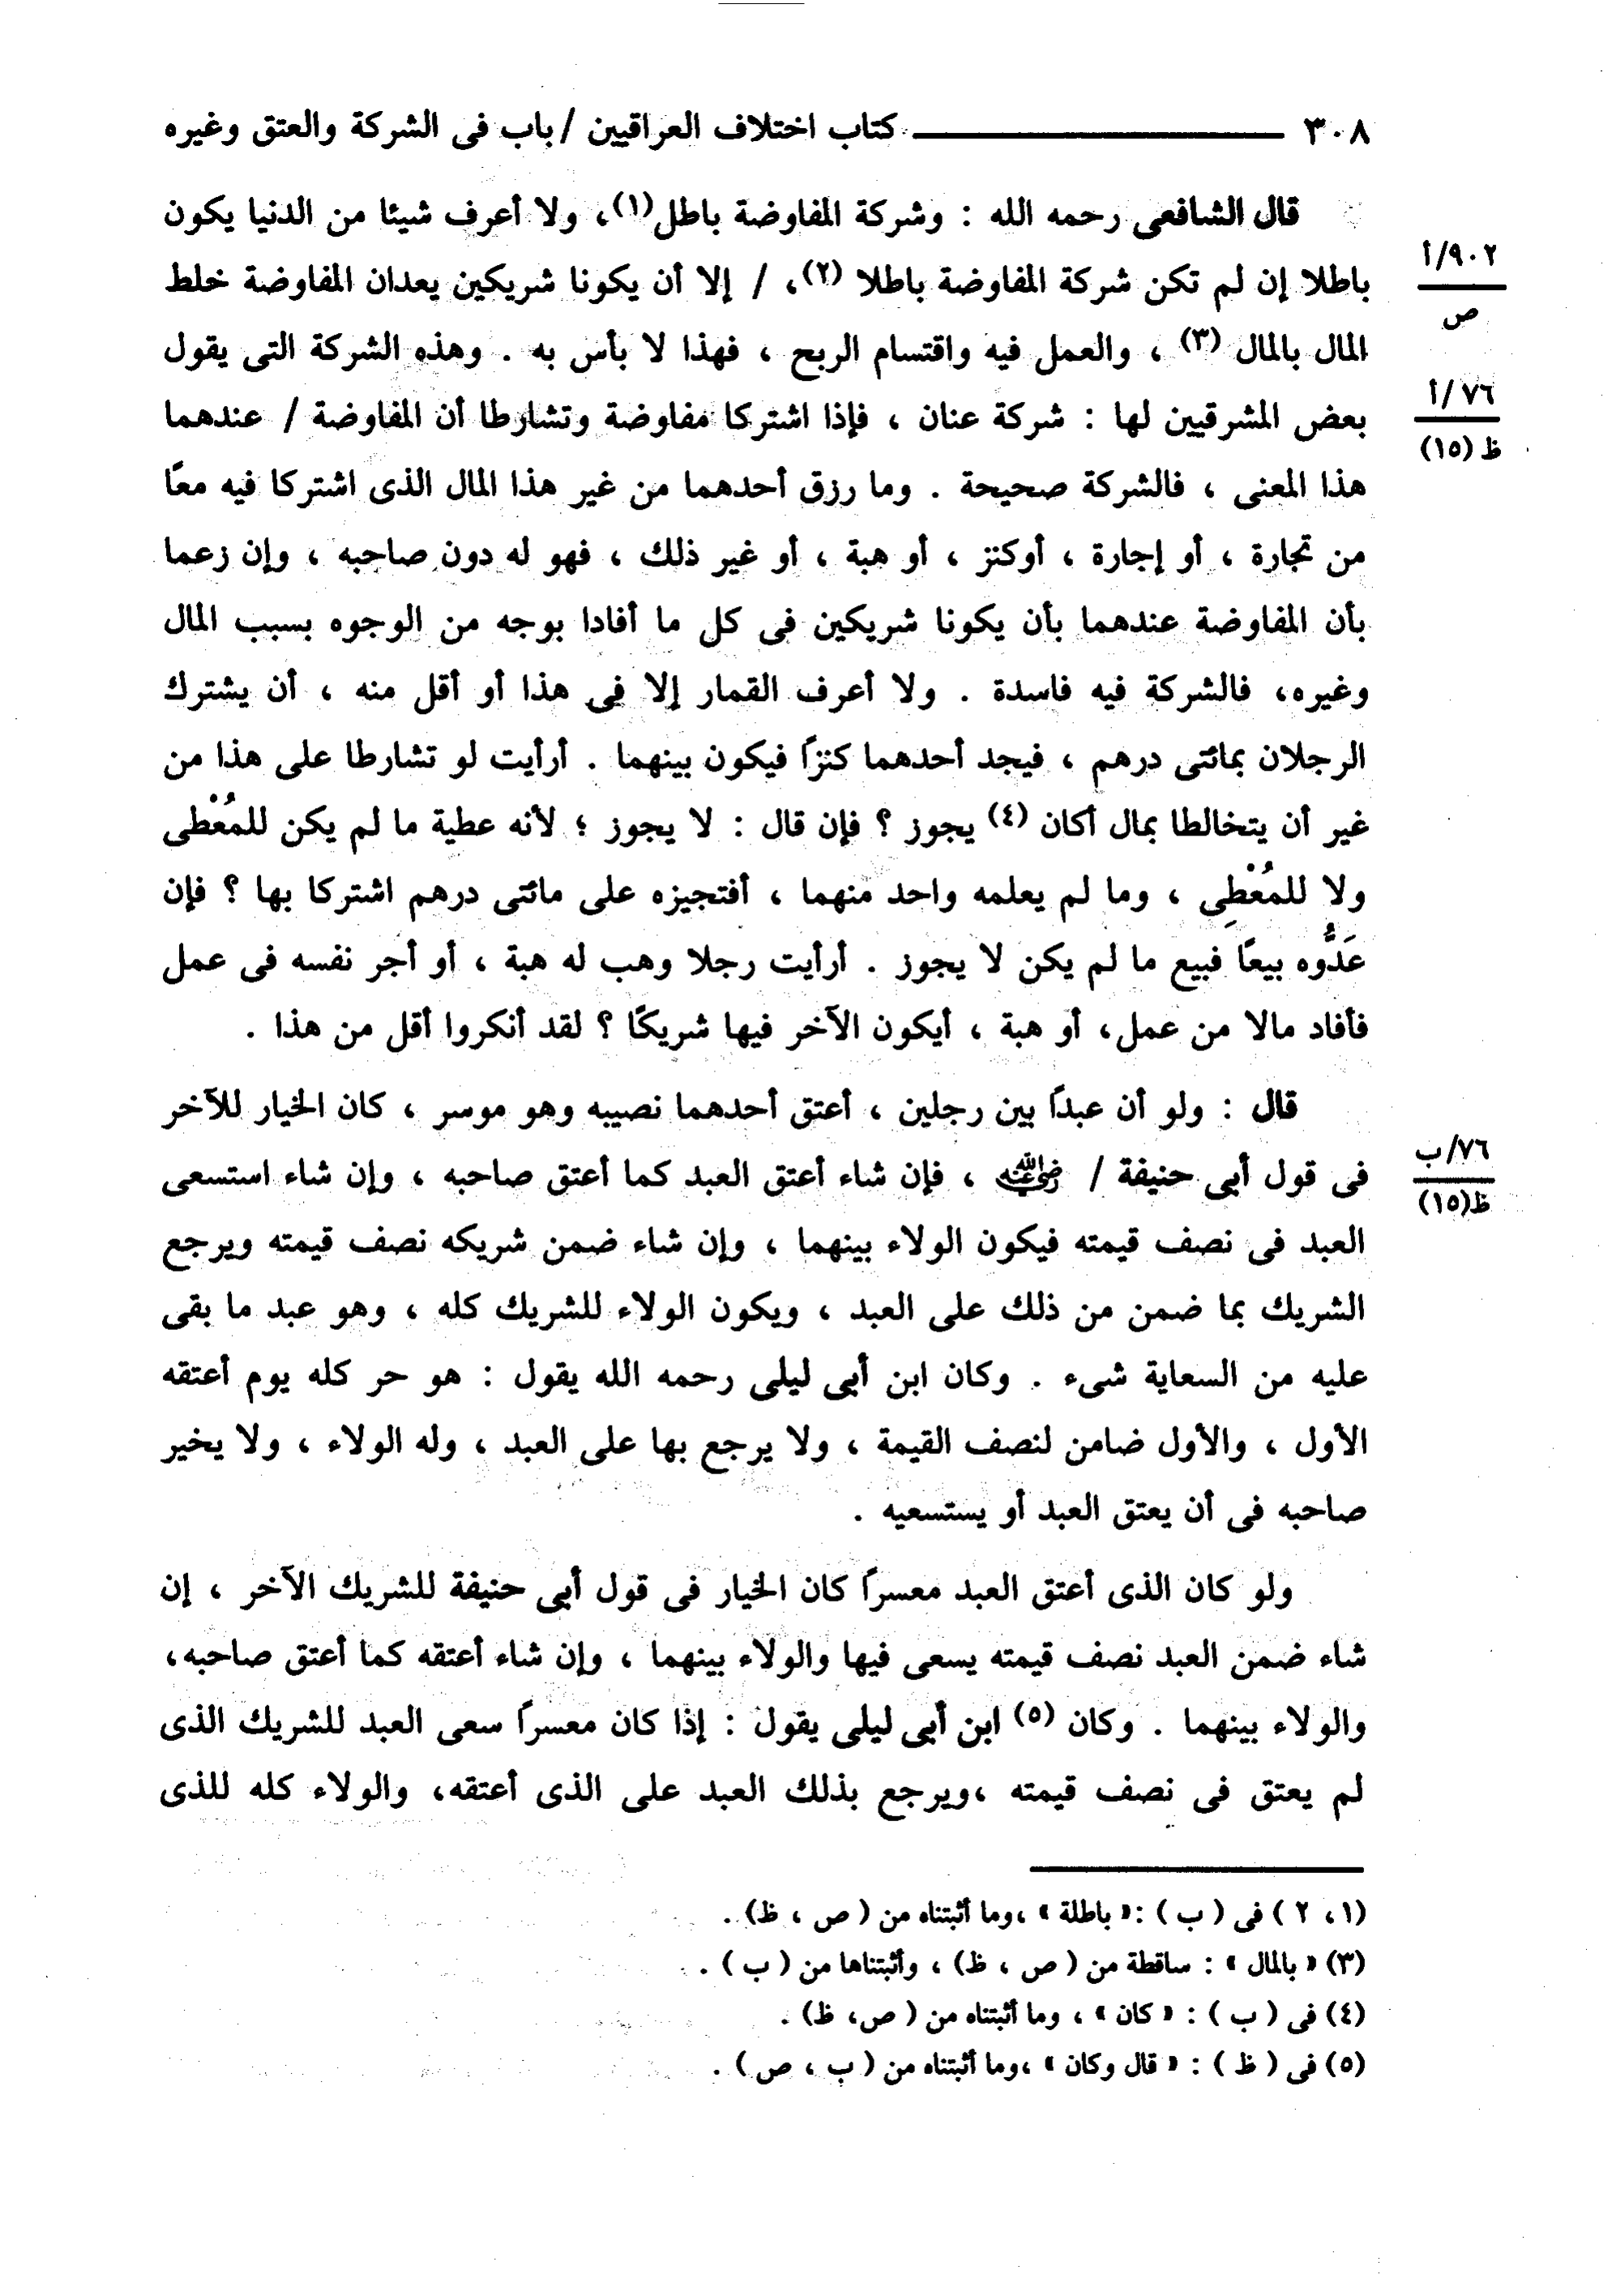 ٣٠٨ ــــــــــــــ كتاب اختلاف العراقيين / باب فى الشركة والعتق وغيره
قال الشافعى رحمه الله : وشركة المفاوضة باطل(١)، ولا أعرف شيئا من الدنيا يكون
باطلا إن لم تكن شركة المفاوضة باطلا (٢)، / إلا أن يكونا شريكين يعدان المفاوضة خلط
٩٠٢/أ
ص
المال بالمال (٣) ، والعمل فيه واقتسام الربح ، فهذا لا بأس به . وهذه الشركة التى يقول
بعض المشرقيين لها : شركة عنان ، فإذا اشتركا مفاوضة وتشارطا أن المفاوضة / عندهما
٧٦/أ
ظ (١٥)
هذا المعنى ، فالشركة صحيحة . وما رزق أحدهما من غير هذا المال الذى اشتركا فيه معًا
من تجارة ، أو إجارة ، أوكنز ، أو هبة ، أو غير ذلك ، فهو له دون صاحبه ، وإن زعما
بأن المفاوضة عندهما بأن يكونا شريكين فى كل ما أفادا بوجه من الوجوه بسبب المال
وغيره، فالشركة فيه فاسدة . ولا أعرف القمار إلا فى هذا أو أقل منه ، أن يشترك
الرجلان بمائتى درهم ، فيجد أحدهما كنزًا فيكون بينهما . أرأيت لو تشارطا على هذا من
غير أن يتخالطا بمال أكان (٤) يجوز ؟ فإن قال : لا يجوز ؛ لأنه عطية ما لم يكن للمُعْطى
ولا للمُعْطِى ، وما لم يعلمه واحد منهما ، أفتجيزه على مائتى درهم اشتركا بها ؟ فإن
عَدُّوه بيعًا فبيع ما لم يكن لا يجوز . أرأيت رجلا وهب له هبة ، أو أجر نفسه فى عمل
فأفاد مالا من عمل، أو هبة ، أيكون الآخر فيها شريكًا ؟ لقد أنكروا أقل من هذا .
قال : ولو أن عبدًا بين رجلين ، أعتق أحدهما نصيبه وهو موسر ، كان الخيار للآخر
فى قول أبى حنيفة / رضي الله عنه ، فإن شاء أعتق العبد كما أعتق صاحبه ، وإن شاء استسعى
٧٦/ب
ظ(١٥)
العبد فى نصف قيمته فيكون الولاء بينهما ، وإن شاء ضمن شريكه نصف قيمته ويرجع
الشريك بما ضمن من ذلك على العبد ، ويكون الولاء للشريك كله ، وهو عبد ما بقى
عليه من السعاية شىء . وكان ابن أبى ليلى رحمه الله يقول : هو حر كله يوم أعتقه
الأول ، والأول ضامن لنصف القيمة ، ولا يرجع بها على العبد ، وله الولاء ، ولا يخير
صاحبه فى أن يعتق العبد أو يستسعيه .
ولو كان الذى أعتق العبد معسرًا كان الخيار فى قول أبى حنيفة للشريك الآخر ، إن
شاء ضمن العبد نصف قيمته يسعى فيها والولاء بينهما ، وإن شاء أعتقه كما أعتق صاحبه،
والولاء بينهما . وكان (٥) ابن أبى ليلى يقول : إذا كان معسرًا سعى العبد للشريك الذى
لم يعتق فى نصف قيمته ،ويرجع بذلك العبد على الذى أعتقه، والولاء كله للذى
(١، ٢ ) فى ( ب ) :« باطلة » ،وما أثبتناه من ( ص ، ظ) .
(٣) « بالمال » : ساقطة من ( ص ، ظ) ، وأثبتناها من ( ب ) .
(٤) فى ( ب ) : « كان » ، وما أثبتناه من ( ص، ظ) .
(٥) فى ( ظ ) : « قال وكان » ،وما أثبتناه من ( ب ، ص ) .